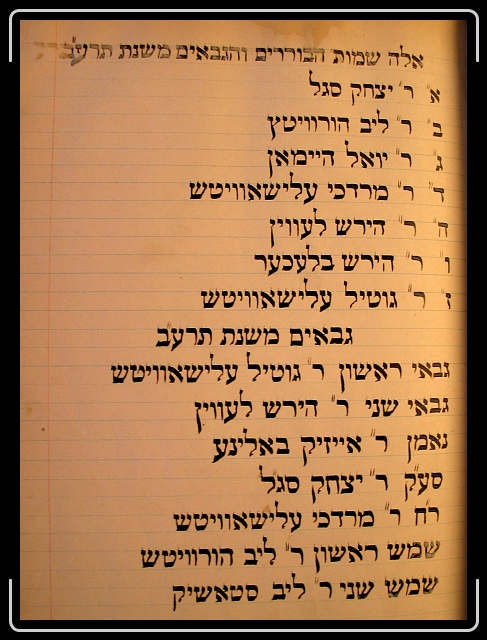 אלה שמות הבוררים והגבאים משנת תרע״ב
א״ ר״ יצחק סגל
ב״ ר״ ליב הורוויטץ
ג״ ר״ יואל היימאן
ד״ ר״ מרדכי עלישאוויטש
ה״ ר״ הירש לעווין
ו״ ר״ הירש בלעכער
ז״ ר״ גוטיל עלישאוויטש
גבאים משנת תרע״ב
גבאי ראשון ר״ גוטיל עלישאוויטש
גבאי שני ר״ הירש לעווין
נאמן ר״ אייזיק באלינע
סע״ק ר״ יצחק סגל
ר״ח ר״ מרדכי עלישאוויטש
שמש ראשון ר״ ליב הורוויטש
שמש שני ר״ ליב סטאשיק